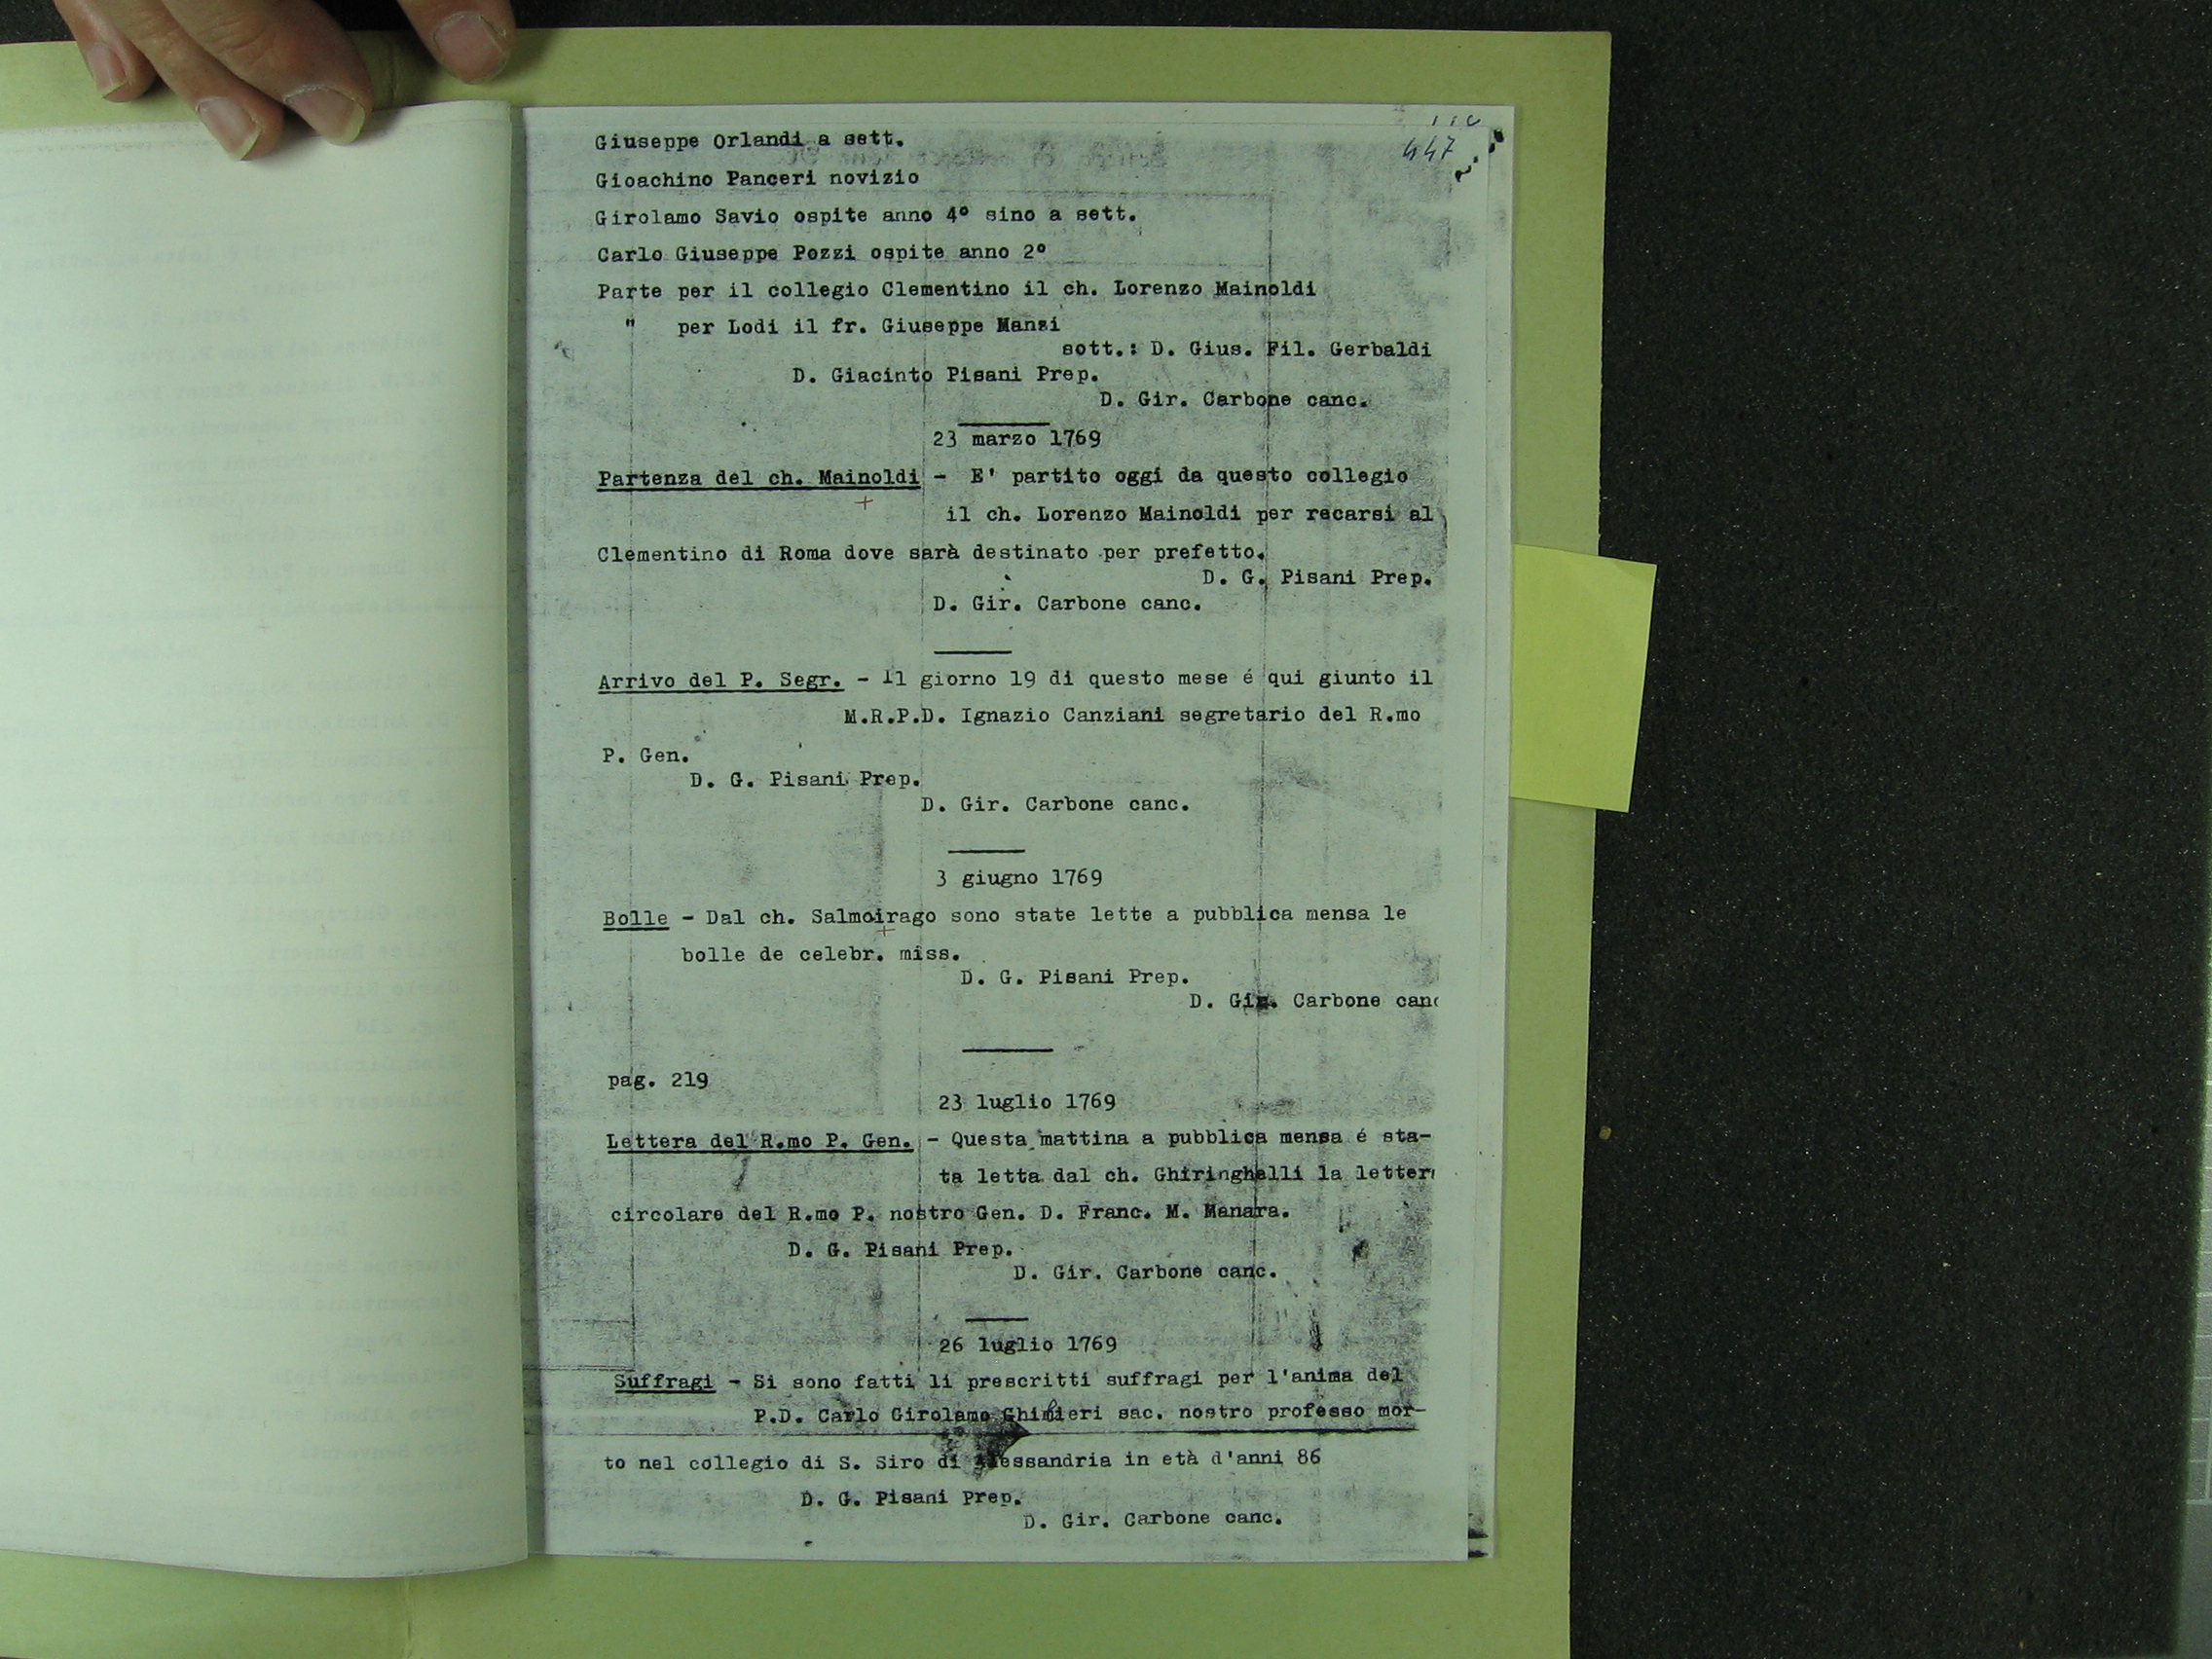 447
Giuseppe Orlandi a sett.
Gioachino Panceri novizio
Girolamo Savio ospite anno 4° sino a sett.
Carlo Giuseppe Pozzi ospite anno 2°
Parte per il collegio Clementino il ch. Lorenzo Mainoldi
" per Lodi il fr. Giuseppe Manzi
sott.: D. Gius. Fil. Gerbaldi
D. Giacinto Pisani Prep.
D. Gir. Carbone canc.
23 marzo 1769
Partenza del ch. Mainoldi - E' partito oggi da questo collegio
il ch. Lorenzo Mainoldi per recarsi al
Clementino di Roma dove sarà destinato per prefetto.
D. G. Pisani Prep.
D. Gir. Carbone canc.
Arrivo del P. Segr. - Il giorno 19 di questo mese é qui giunto il
M.R.P.D. Ignazio Canziani segretario del R.mo
P. Gen.
D. G. Pisani Prep.
D. Gir. Carbone canc.
3 giugno 1769
Bolle - Dal ch. Salmoirago sono state lette a pubblica mensa le
bolle de celebr. miss.
D. G. Pisani Prep.
D. Gir. Carbone canc
pag. 219
23 luglio 1769
Lettera del R.mo P. Gen. - Questa mattina a pubblica mensa é sta-
ta letta dal ch. Ghiringhelli la letter
circolare del R.mo P. nostro Gen. D. Franc. M. Manara.
D. G. Pisani Prep.
D. Gir. Carbone canc.
26 luglio 1769
Suffragi - Si sono fatti li prescritti suffragi per l'anima del
P.D. Carlo Girolamo sac. nostro professo mor-
to nel collegio di S. Siro di Alessandria in età d'anni 86
D. G. Pisani Prep.
D. Gir. Carbone canc.